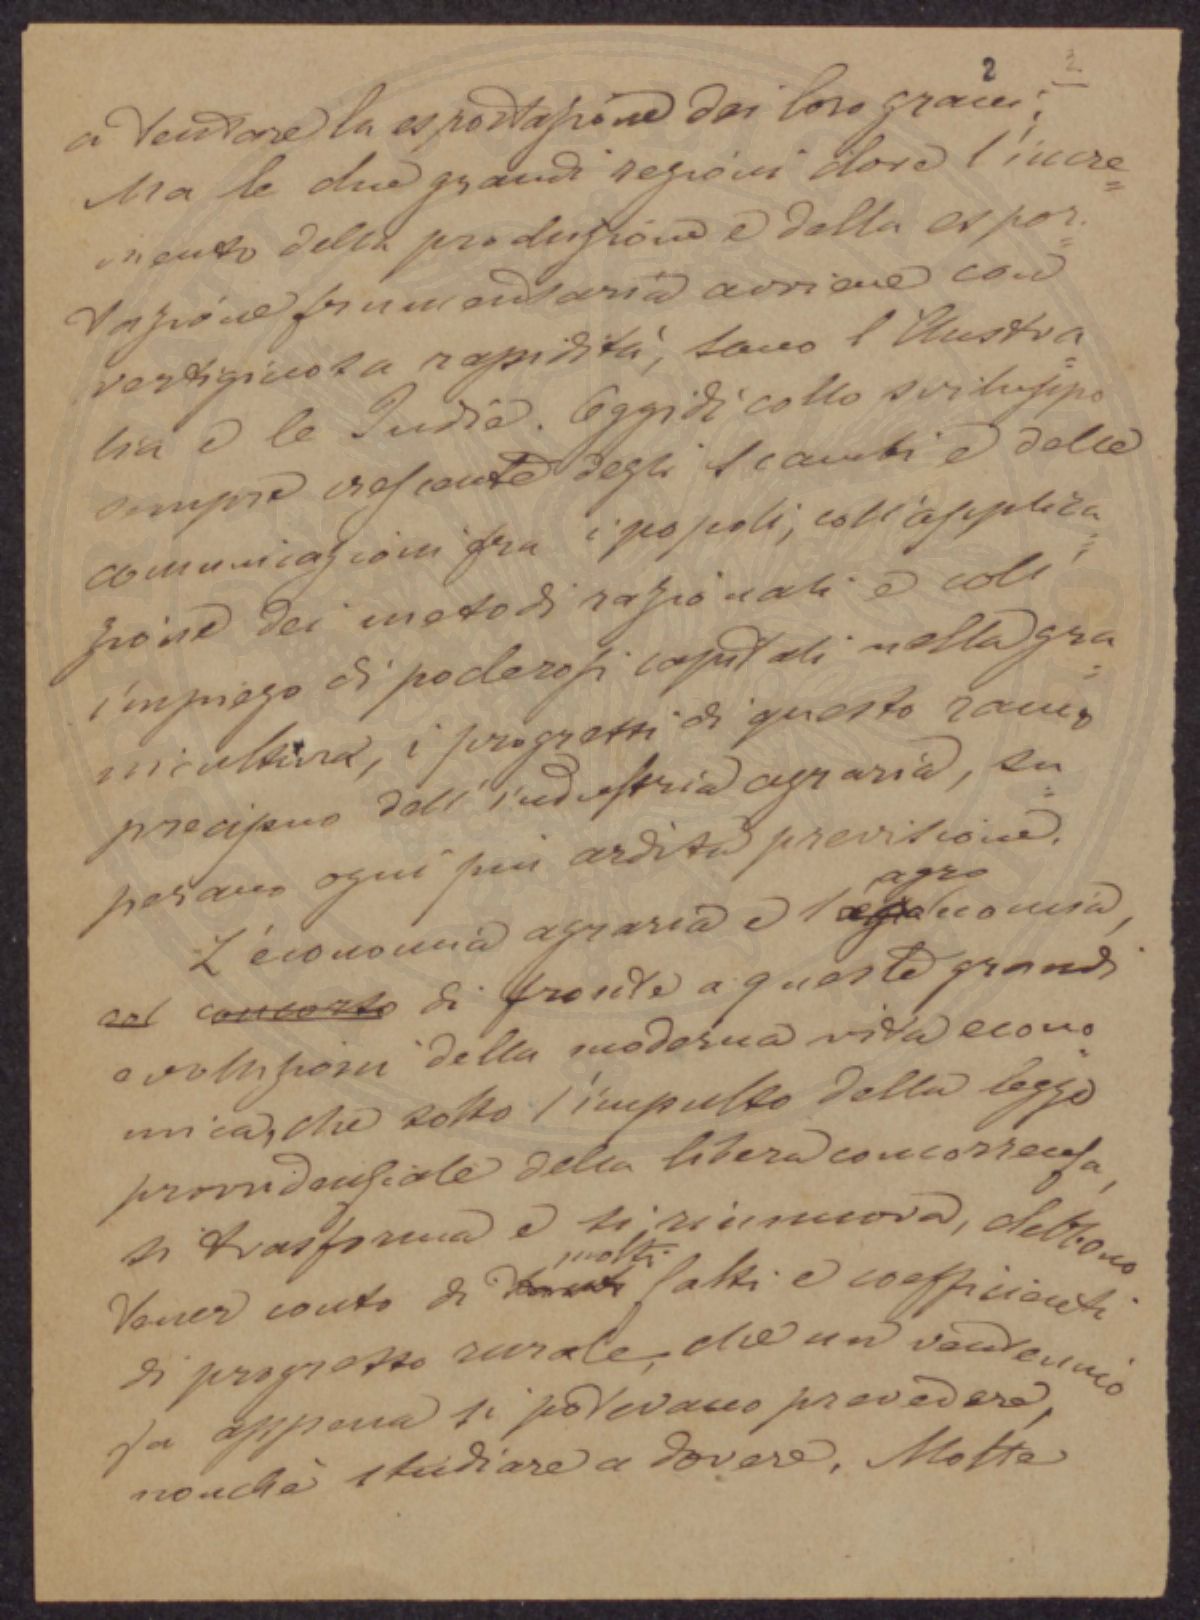 2 2
a tentare la esportazione dei loro grani;
Ma le due grandi regioni dove l'incre=
mento della produzione e della espor=
tazione frumentaria avviene con
vertiginosa rapidità, sono l'Austra=
lia e le Indie. Oggidì collo sviluppo
sempre crescente degli scambi e delle
comunicazioni fra i popoli, coll'applica=
zione dei metodi razionali e coll'
impiego di poderosi capitali nella gra=
nicultura, i progressi di questo ramo
precipuo dell'industria agraria, su=
perano ogni più ardita previsione.
agro
L'economia agraria e l'nomia,
col concorso di fronte a queste grandi
evoluzioni della moderna vita econo=
mica, che sotto l'impulso della legge
provvidenziale della libera concorrenza,
si trasforma e si rinnuova, debbono
molti
tener conto di fatti e coefficienti
di progresso rurale, che un ventennio
fa appena si potevano prevedere,
nonchè studiare a dovere. Molte